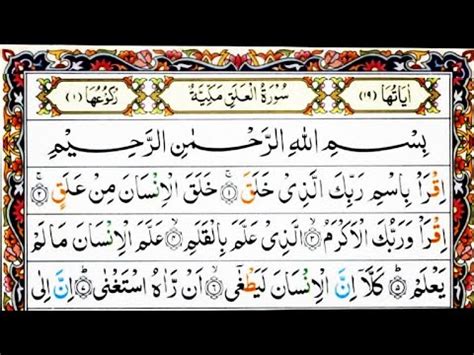 اٰيَاتُهَا (١٩) سُوْرَةُ الْعَلَقِ مَكِّيَّةٌ رُكُوْعُهَا (١)
بِسْمِ اللهِ الرَّحْمٰنِ الرَّحِيْمِ
اِقْرَاْ بِاسْمِ رَبِّكَ الَّذِىْ خَلَقَ ۚ﴿١﴾ خَلَقَ الْاِنْسَانَ مِنْ عَلَقٍ ۚ﴿٢﴾
اِقْرَاْ وَرَبُّكَ الْاَكْرَمُ ۙ﴿٣﴾ الَّذِىْ عَلَّمَ بِالْقَلَمِ ۙ﴿٤﴾ عَلَّمَ الْاِنْسَانَ مَا لَمْ
يَعْلَمْ ؕ﴿٥﴾ كَلَّاۤ اِنَّ الْاِنْسَانَ لَيَطْغٰٓى ۙ﴿٦﴾ اَنْ رَّاٰهُ اسْتَغْنٰى ؕ﴿٧﴾ اِنَّ اِلٰى